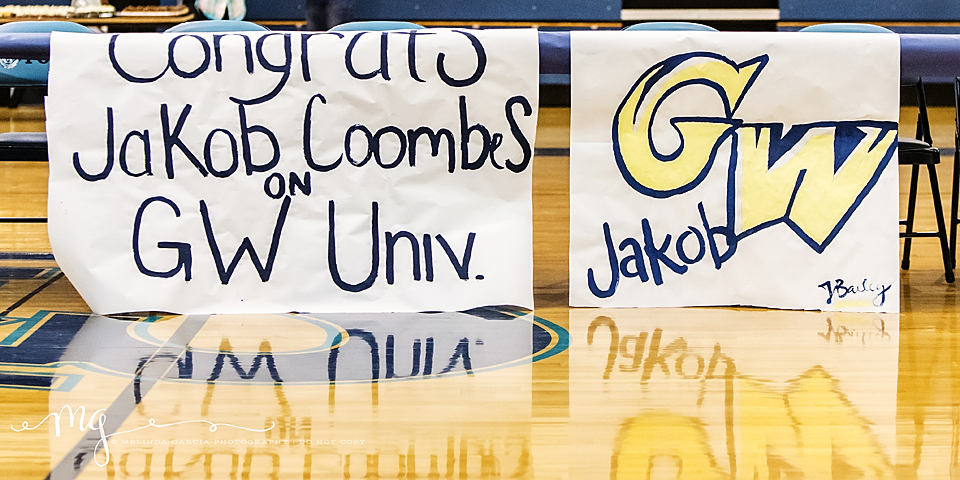 Congrats
Jakob Coombes
ON
GW Univ.
GW
Jakob
JBailey
mg
© MELINDA GARCIA PHOTOGRAPHY | DO NOT COPY